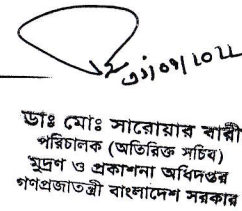 ডাঃ মোঃ সারোয়ার বারী
পরিচালক (অতিরিক্ত সচিব)
মুদ্রণ ও প্রকাশনা অধিদপ্তর
গণপ্রজাতন্ত্রী বাংলাদেশ সরকার